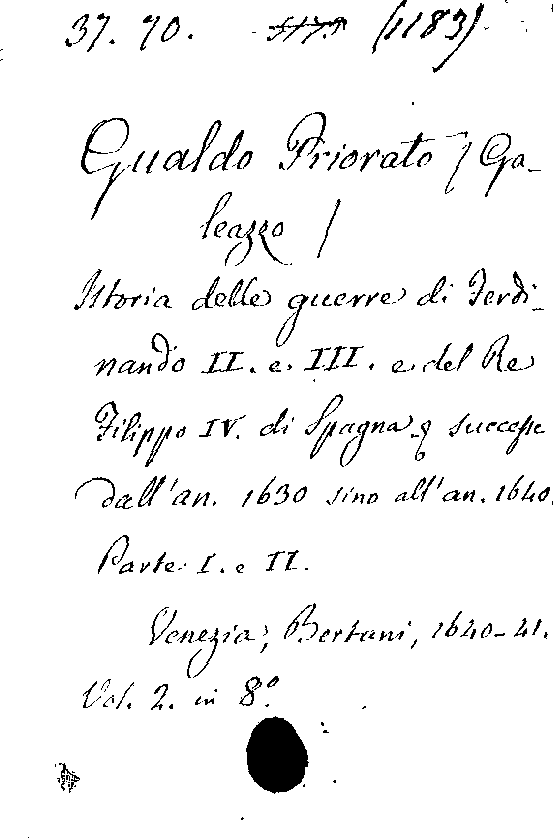 37. 70. (1183)
Gualdo Priorato / Ga-
leazzo /
Istoria delle guerre di Ferdi-
nando II. e III. e del Re
Filippo IV. di Spagna successe
dall'an. 1630 sino all'an. 1640.
Parte I. e II.
Venezia, Bertani, 1640-41.
Vol. 2. in 8º.